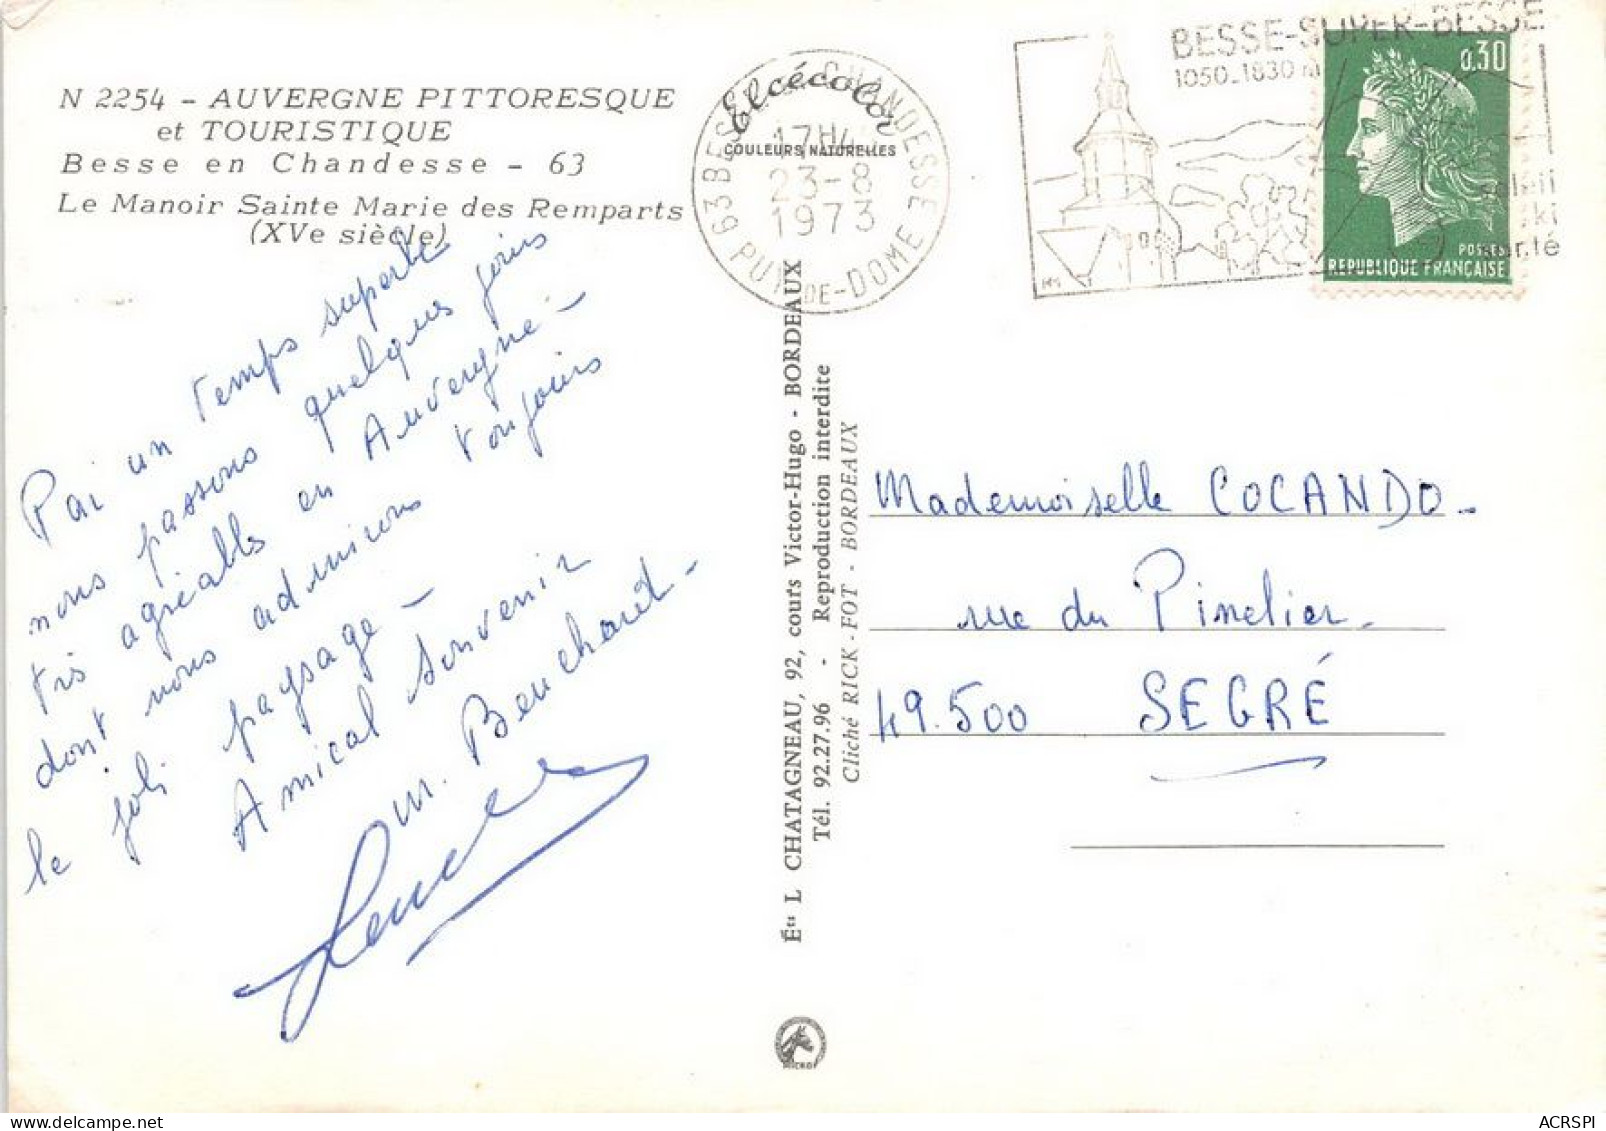 N 2254 - AUVERGNE PITTORESQUE
et TOURISTIQUE
Besse en Chandesse - 63
Le Manoir Sainte Marie des Remparts
(XVe siècle)
Par un temps superbe
nous passons quelques jours
très agréables en Auvergne -
dont nous admirons toujours
le joli paysage -
Amical souvenir
m. Beucharet -
Elcécolor
COULEURS NATURELLES
63 BESSE EN CHANDESSE
17H
23-8
1973
PUY-DE-DOME
BESSE-SUPER-BESSE
1050-1830 m
soleil
ski
santé
0,30
POSTES
REPUBLIQUE FRANÇAISE
Éts L CHATAGNEAU, 92, cours Victor-Hugo - BORDEAUX
Tél. 92.27.96 - Reproduction interdite
Cliché RICK-FOT - BORDEAUX
Mademoiselle COCANDO -
rue du Pinelier -
49.500 SEGRÉ
MICRO
ACRSPI